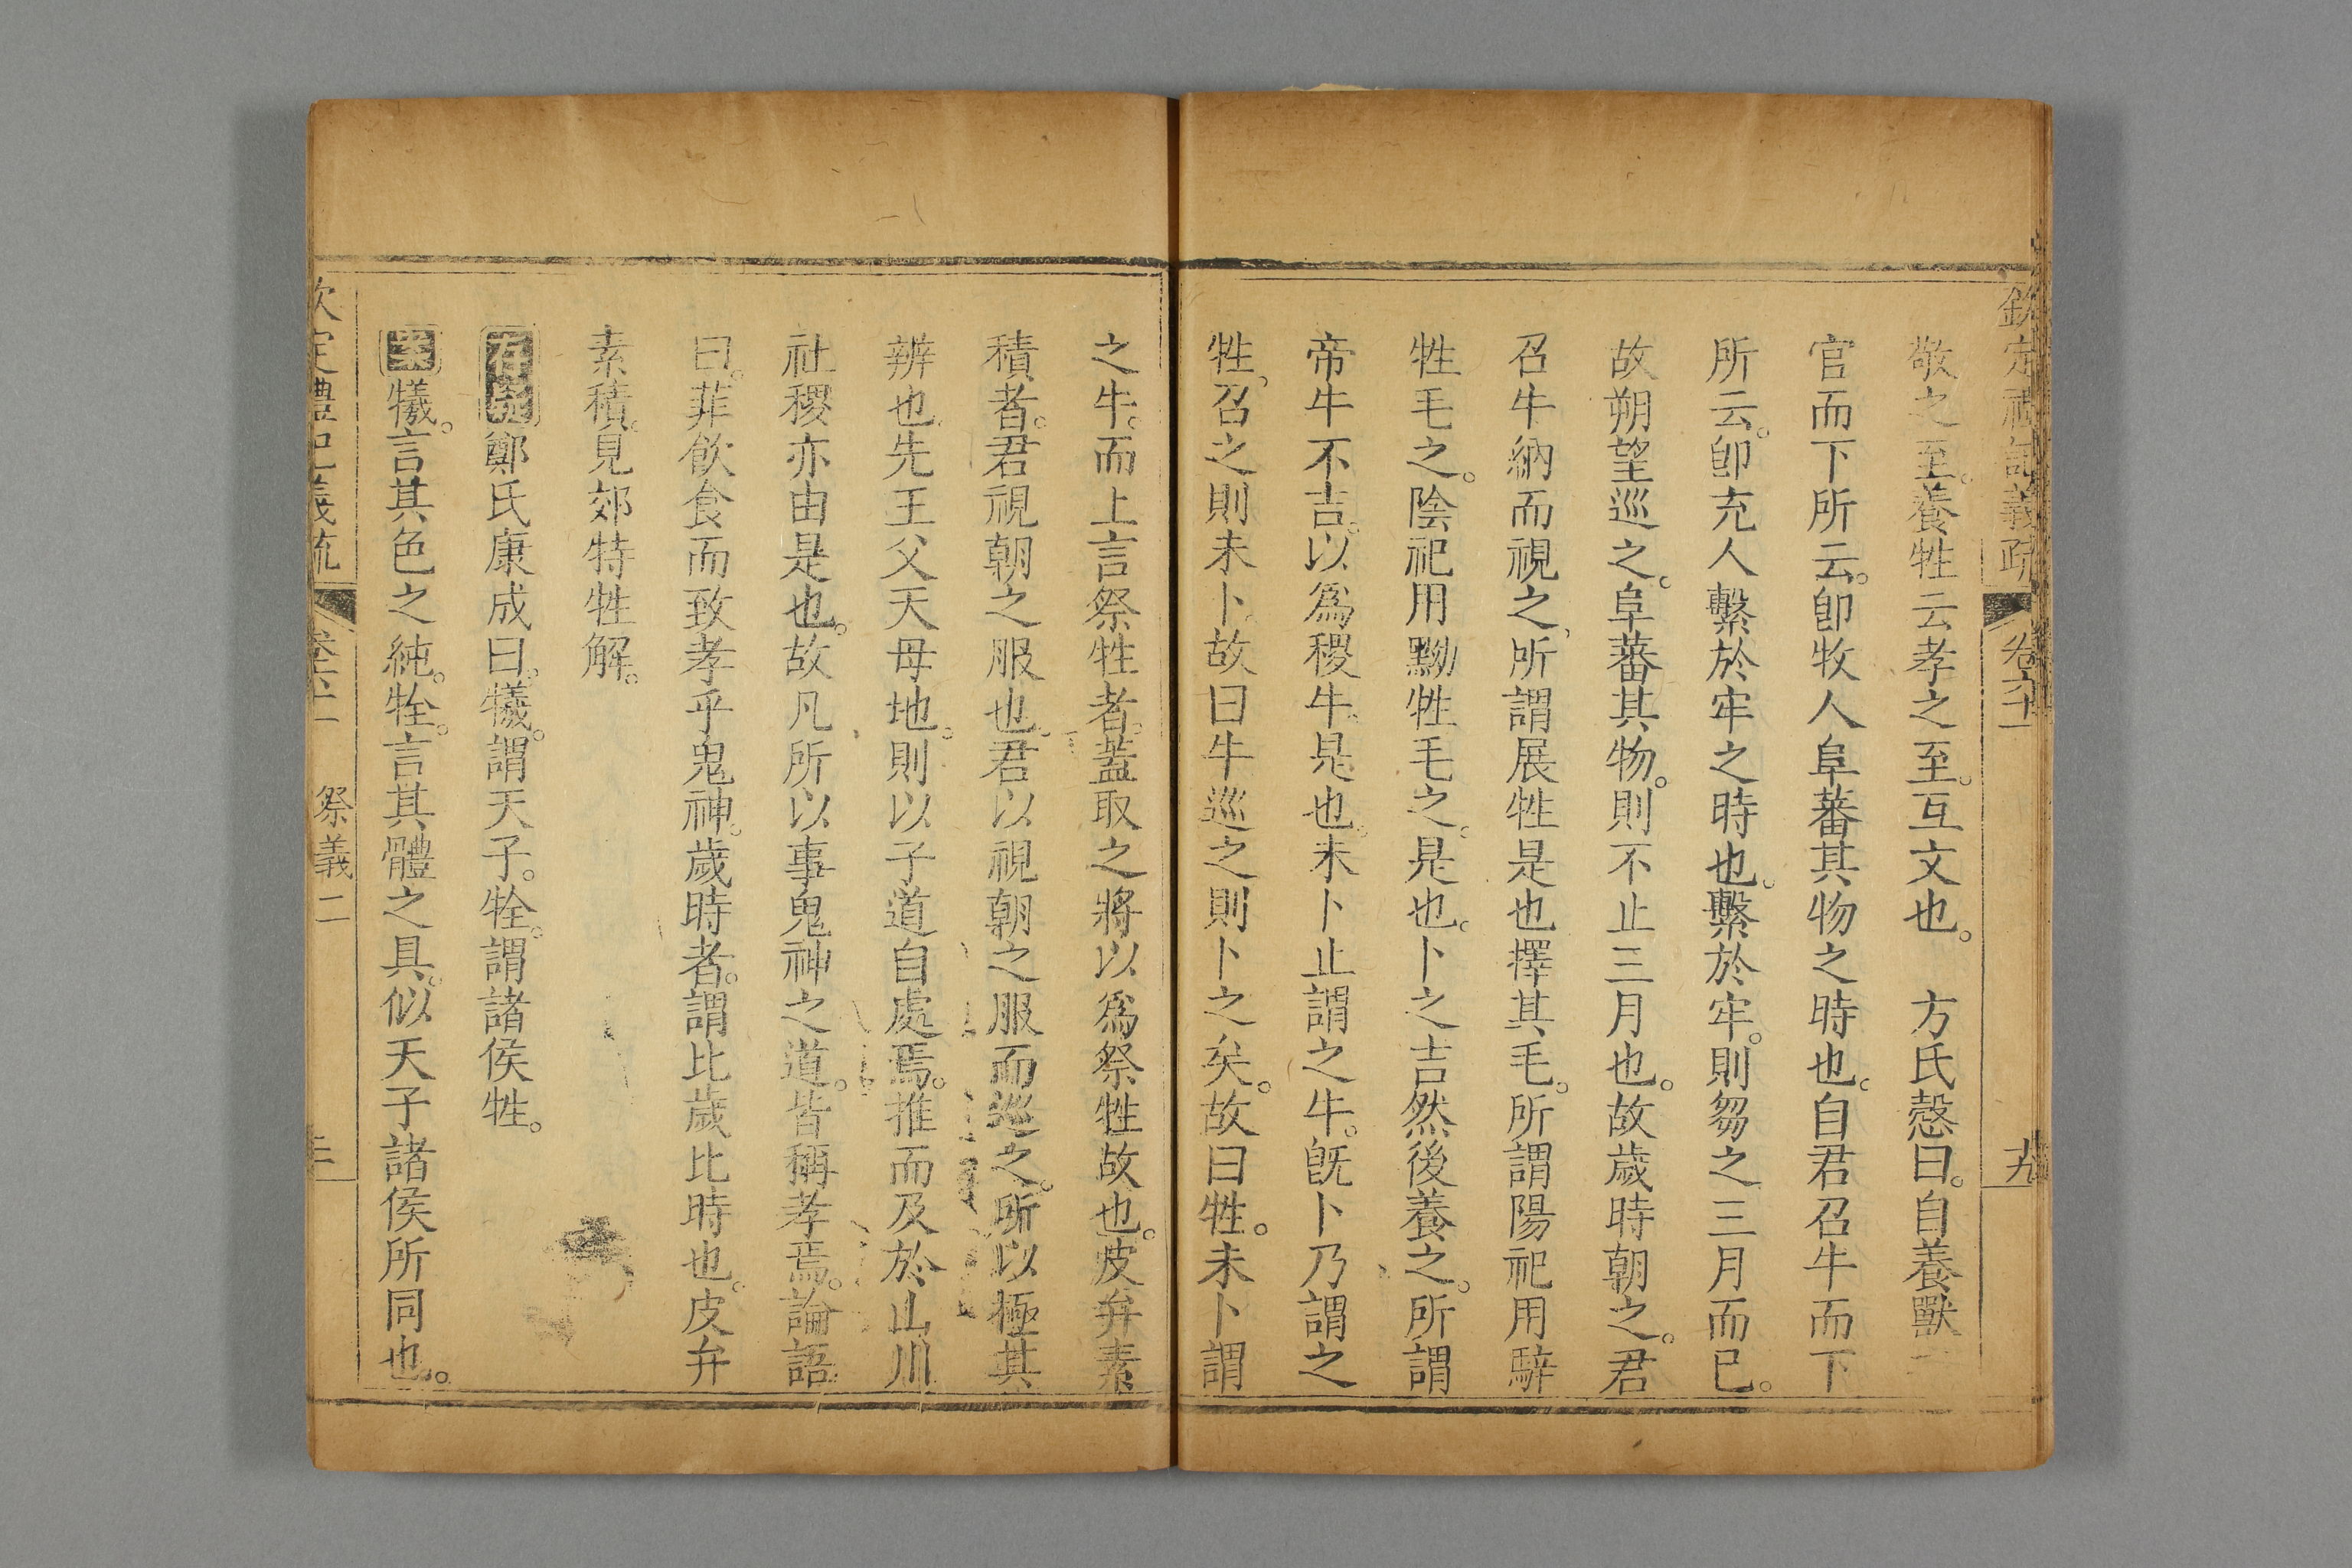 欽定禮記義疏 卷六十一 十九
敬之至。養牲云孝之至。互文也。 方氏慤曰。自養獸
官而下所云。卽牧人阜蕃其物之時也。自君召牛而下
所云。卽充人繫於牢之時也。繫於牢。則芻之三月而已。
故朔望巡之。阜蕃其物。則不止三月也。故歲時朝之。君
召牛納而視之。所謂展牲是也擇其毛。所謂陽祀用騂
牲毛之。陰祀用黝牲毛之。是也。卜之吉然後養之。所謂
帝牛不吉。以爲稷牛。是也。未卜止謂之牛。旣卜乃謂之
牲。召之則未卜。故曰牛巡之則卜之矣。故曰牲。未卜謂
之牛。而上言祭牲者。蓋取之將以爲祭牲故也。皮弁素
積者。君視朝之服也。君以視朝之服而巡之。所以極其
辨也先王父天母地。則以子道自處焉。推而及於山川
社稷亦由是也。故凡所以事鬼神之道。皆稱孝焉。論語
曰。菲飲食而致孝乎鬼神。歲時者。謂比歲比時也。皮弁
素積。見郊特牲解。
存疑鄭氏康成曰。犧。謂天子。牷。謂諸侯牲。
案犧。言其色之純。牷。言其體之具。似天子諸侯所同也。
欽定禮記義疏 卷六十一 祭義二